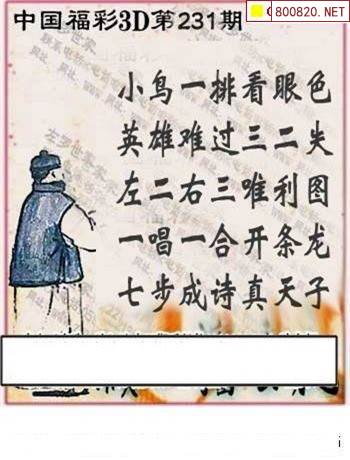 中国福彩3D第231期
800820.NET
小鸟一排看眼色
英雄难过三二失
左二右三唯利图
一唱一合开条龙
七步成诗真天子